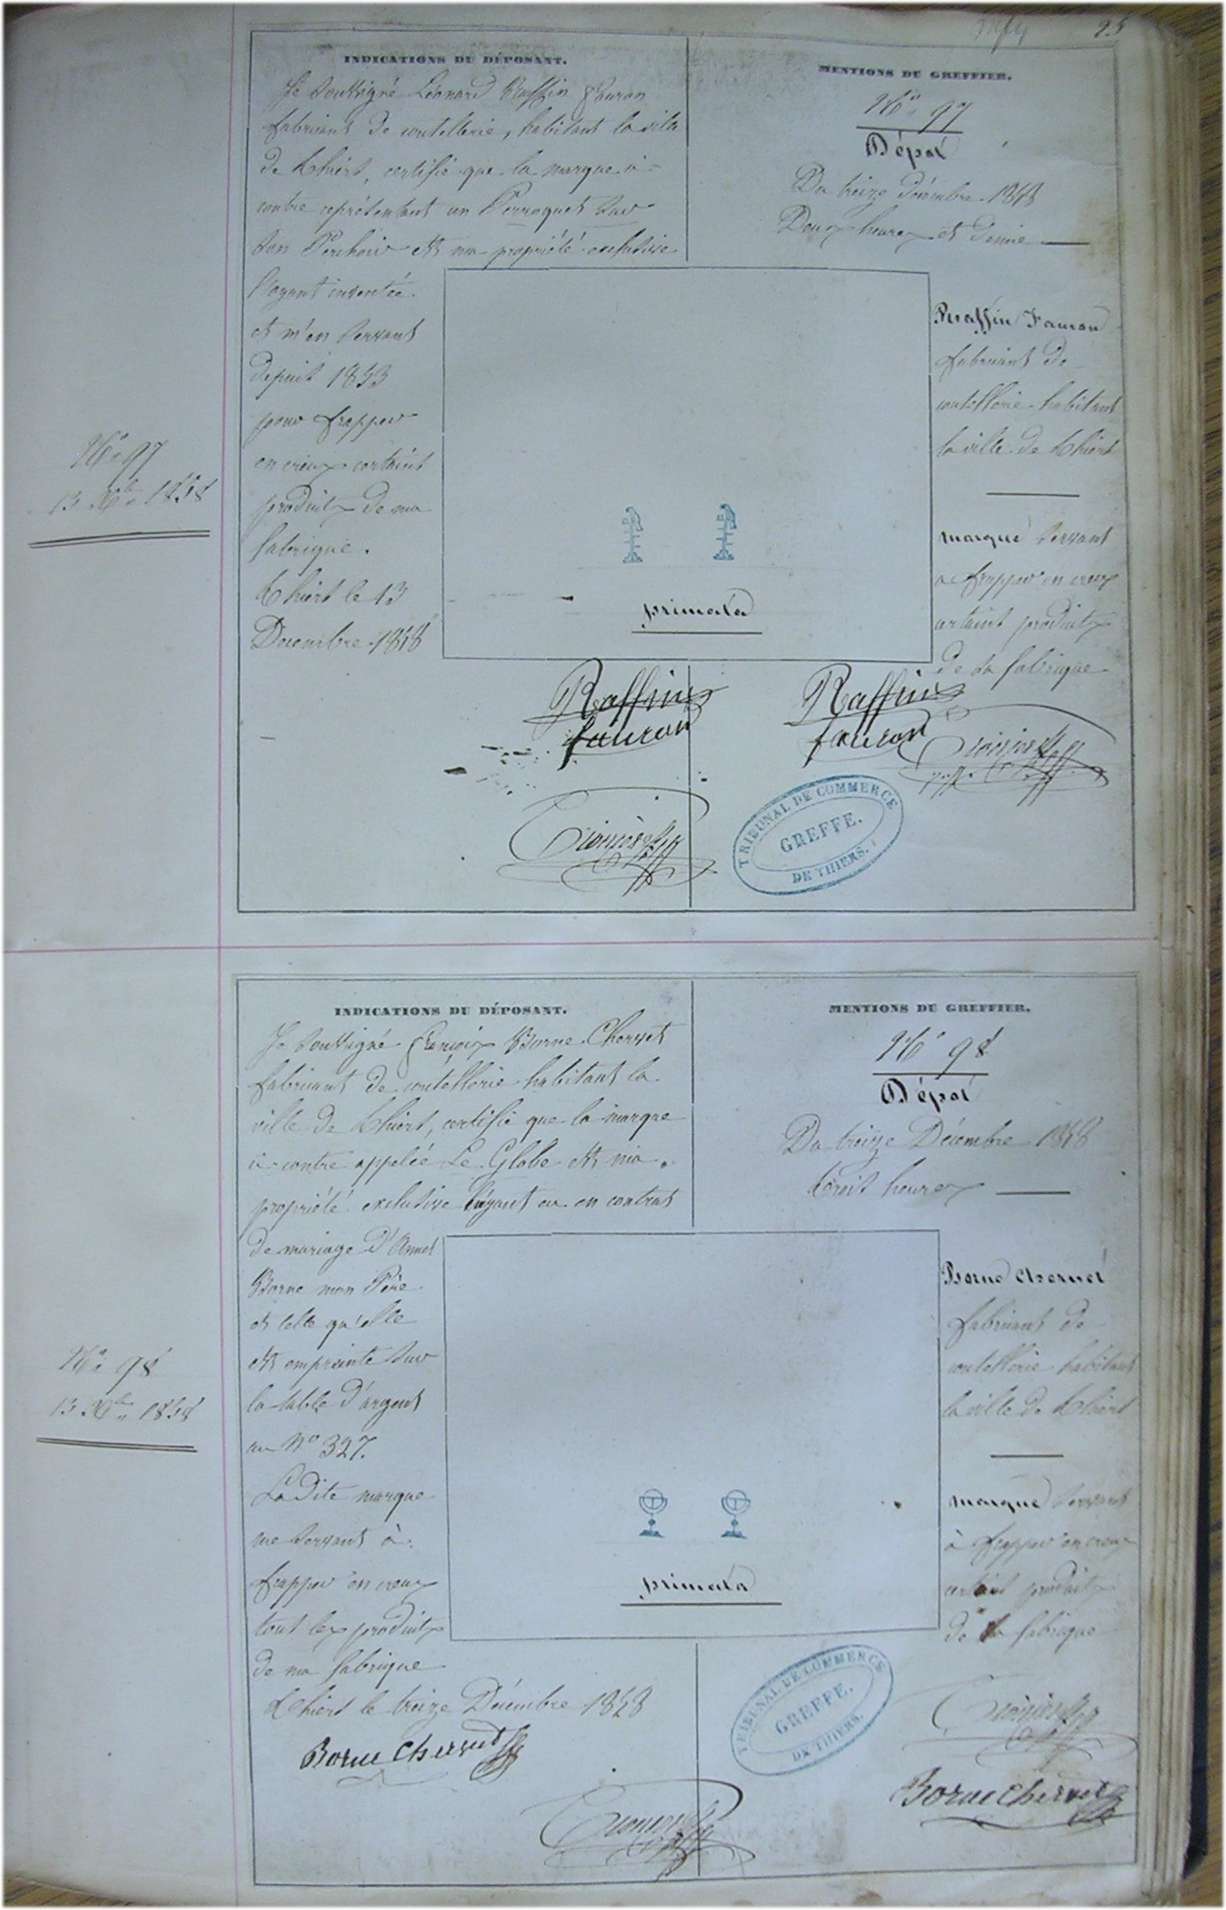 95
INDICATIONS DU DÉPOSANT.
Je soussigné Léonard Raffin Fauron
fabricant de coutellerie, habitant la ville
de Thiers, certifie que la marque ci-
contre représentant un Perroquet sur
son Perchoir est ma propriété exclusive
l'ayant inventée
et m'en servant
depuis 1853
pour frapper
en creux certains
produits de ma
fabrique.
Thiers le 13
Décembre 1858
MENTIONS DU GREFFIER.
No 97
Dépôt
Du treize Décembre 1858
Deux heures et demie
Raffin Fauron
fabricant de
coutellerie habitant
la ville de Thiers
marque servant
a frapper en creux
certains produits
de sa fabrique
No 97
13 Xbre 1858
primata
Raffin
fauron
Raffin
fauron
TRIBUNAL DE COMMERCE
GREFFE.
DE THIERS.
INDICATIONS DU DÉPOSANT.
Je soussigné François Borne Chervet
fabricant de coutellerie habitant la
ville de Thiers, certifie que la marque
ci-contre appelée Le Globe est ma
propriété exclusive l'ayant eu en contrat
de mariage d'Annet
Borne mon Père
et telle qu'elle
est empreinte sur
la table d'argent
au No 327.
La dite marque
me servant à
frapper en creux
tous les produits
de ma fabrique
Thiers le treize Décembre 1858
MENTIONS DU GREFFIER.
No 98
Dépôt
Du treize Décembre 1858
trois heures
Borne Chervet
fabricant de
coutellerie habitant
la ville de Thiers
marque servant
à frapper en creux
certains produits
de sa fabrique
No 98
13 Xbre 1858
primata
Borne Chervet
TRIBUNAL DE COMMERCE
GREFFE.
DE THIERS.
Borne Chervet